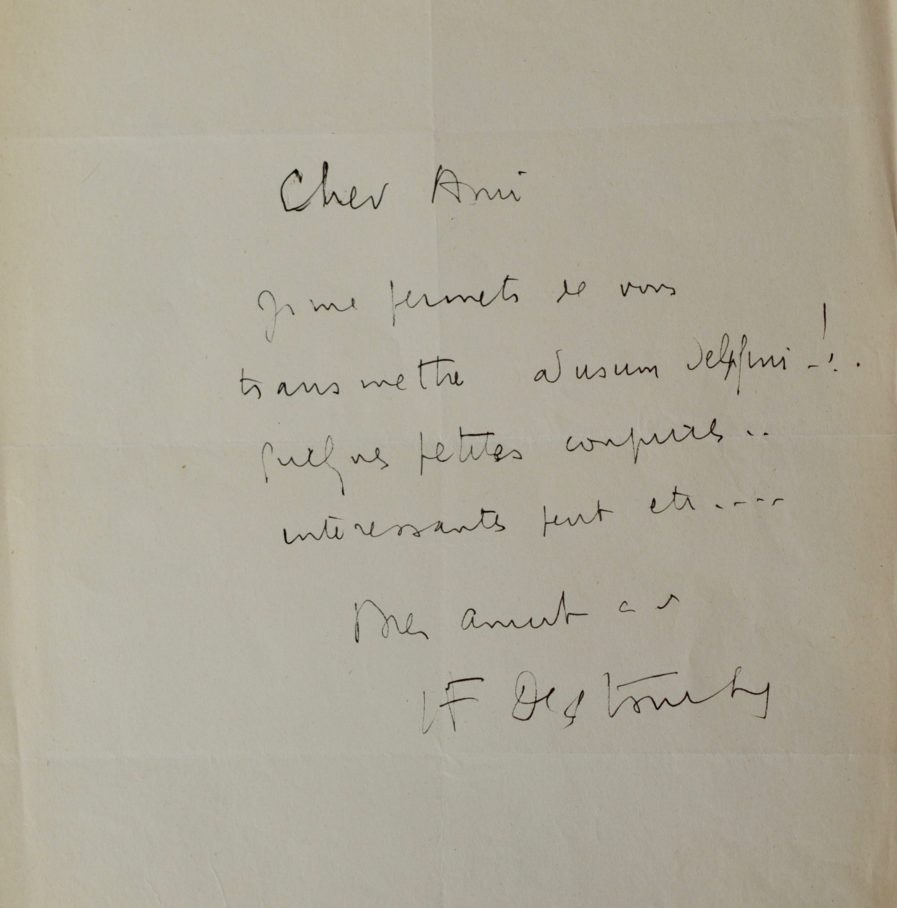 Cher Ami
Je me permets de vous
transmettre ad usum delphini - ! .
quelques petites coupures ..
intéressantes peut etr .----
Bien amint a v
LF Destouches